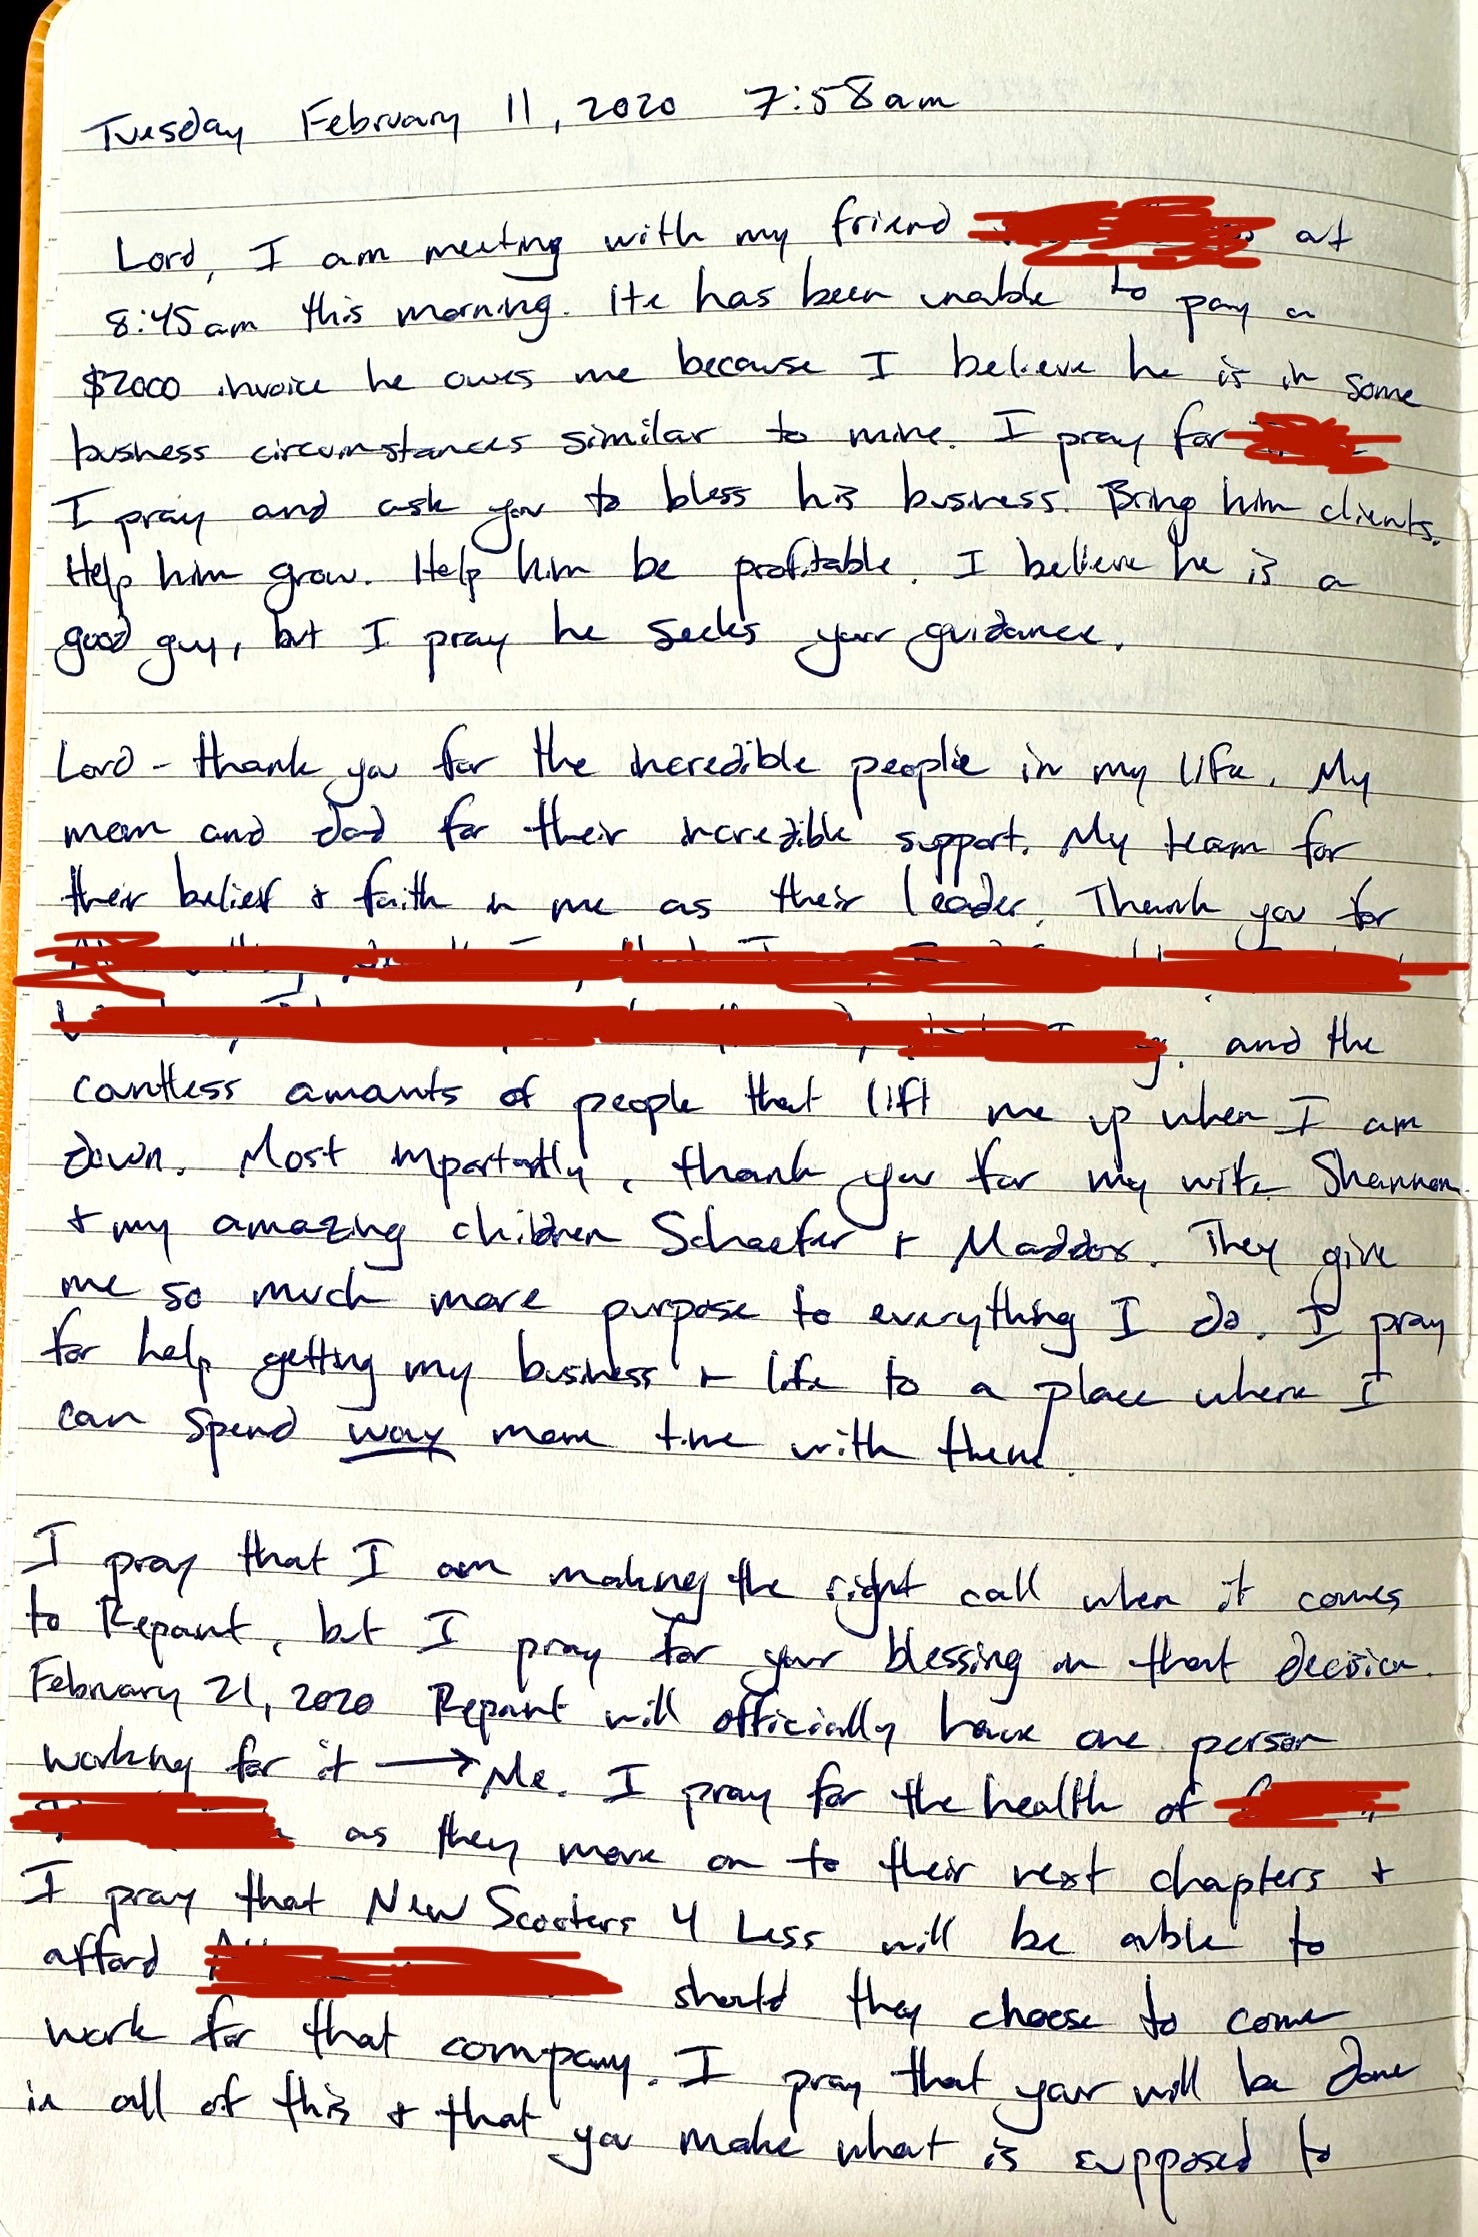 Tuesday February 11, 2020 7:58am
Lord, I am meeting with my friend at
8:45am this morning. He has been unable to pay a
$2000 invoice he owes me because I believe he is in some
business circumstances similar to mine. I pray for
I pray and ask you to bless his business. Bring him clients.
Help him grow. Help him be profitable. I believe he is a
good guy, but I pray he seeks your guidance.
Lord - thank you for the incredible people in my life. My
mom and dad for their incredible support. My team for
their belief & faith in me as their leader. Thank you for
and the
countless amounts of people that lift me up when I am
down. Most importantly, thank you for my wife Shannon
& my amazing children Schaefer & Maddox. They give
me so much more purpose to everything I do. I pray
for help getting my business & life to a place where I
can spend way more time with them.
I pray that I am making the right call when it comes
to Repant, but I pray for your blessing on that decision.
February 21, 2020 Repant will officially have one person
working for it → Me. I pray for the health of
as they move on to their next chapters &
I pray that New Scooters 4 Less will be able to
afford should they choose to come
work for that company. I pray that your will be done
in all of this & that you make what is supposed to